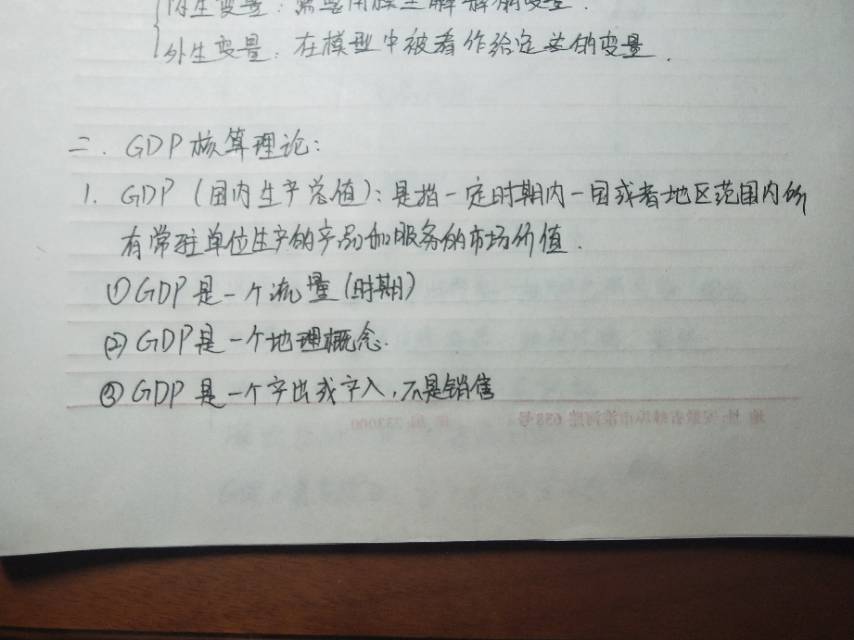 内生变量：需要用模型解释的变量.
外生变量：在模型中被看作给定的变量.
二. GDP核算理论：
1. GDP（国内生产总值）：是指一定时期内一国或者地区范围内所
有常驻单位生产的产品和服务的市场价值.
①GDP是一个流量(时期)
②GDP是一个地理概念.
③GDP是一个产出或产入,不是销售
地 址:安徽省蚌埠市淮河路 658号 邮 编:233000